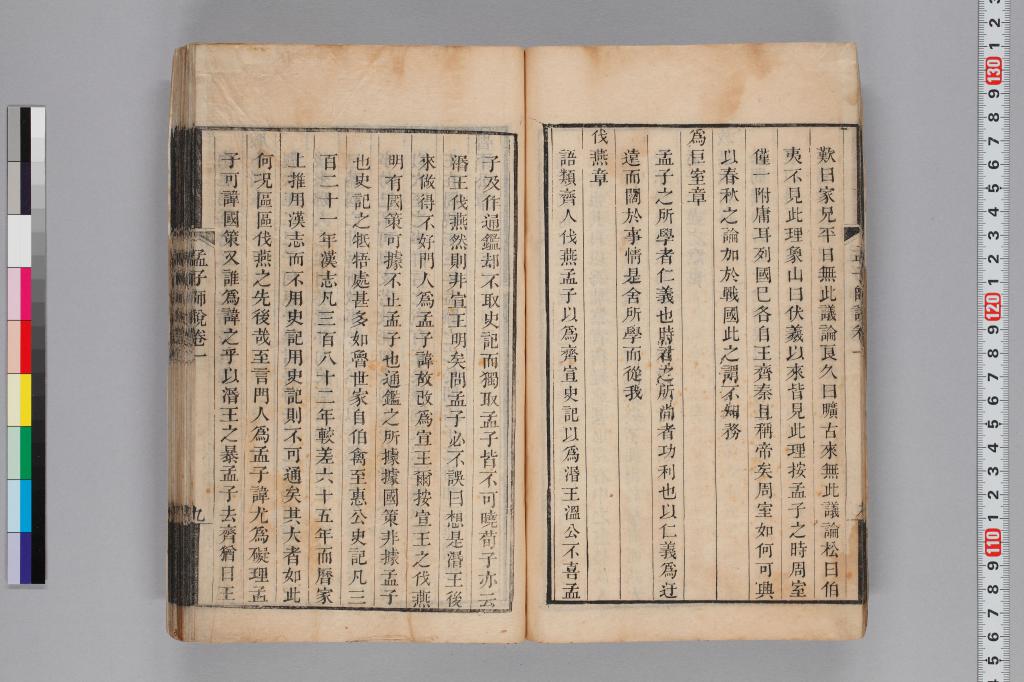 歎曰家兄平日無此議論良久曰曠古來無此議論松曰伯
夷不見此理象山曰伏羲以來皆見此理按孟子之時周室
僅一附庸耳列國已各自王齊秦且稱帝矣周室如何可興
以春秋之論加於戰國此之謂不知務
為巨室章
孟子之所學者仁義也時君之所尚者功利也以仁義為迂
遠而闊於事情是舍所學而從我
伐燕章
語類齊人伐燕孟子以為齊宣史記以為湣王溫公不喜孟
子及作通鑑却不取史記而獨取孟子皆不可曉荀子亦云
湣王伐燕然則非宣王明矣問孟子必不誤曰想是湣王後
來做得不好門人為孟子諱故改為宣王爾按宣王之伐燕
明有國策可據不止孟子也通鑑之所據據國策非據孟子
也史記之牴牾處甚多如魯世家自伯禽至惠公史記凡三
百二十一年漢志凡三百八十二年較差六十五年而曆家
上推用漢志而不用史記用史記則不可通矣其大者如此
何况區區伐燕之先後哉至言門人為孟子諱尤為礙理孟
子可諱國策又誰為諱之乎以湣王之暴孟子去齊猶曰王
孟子師說卷一
九